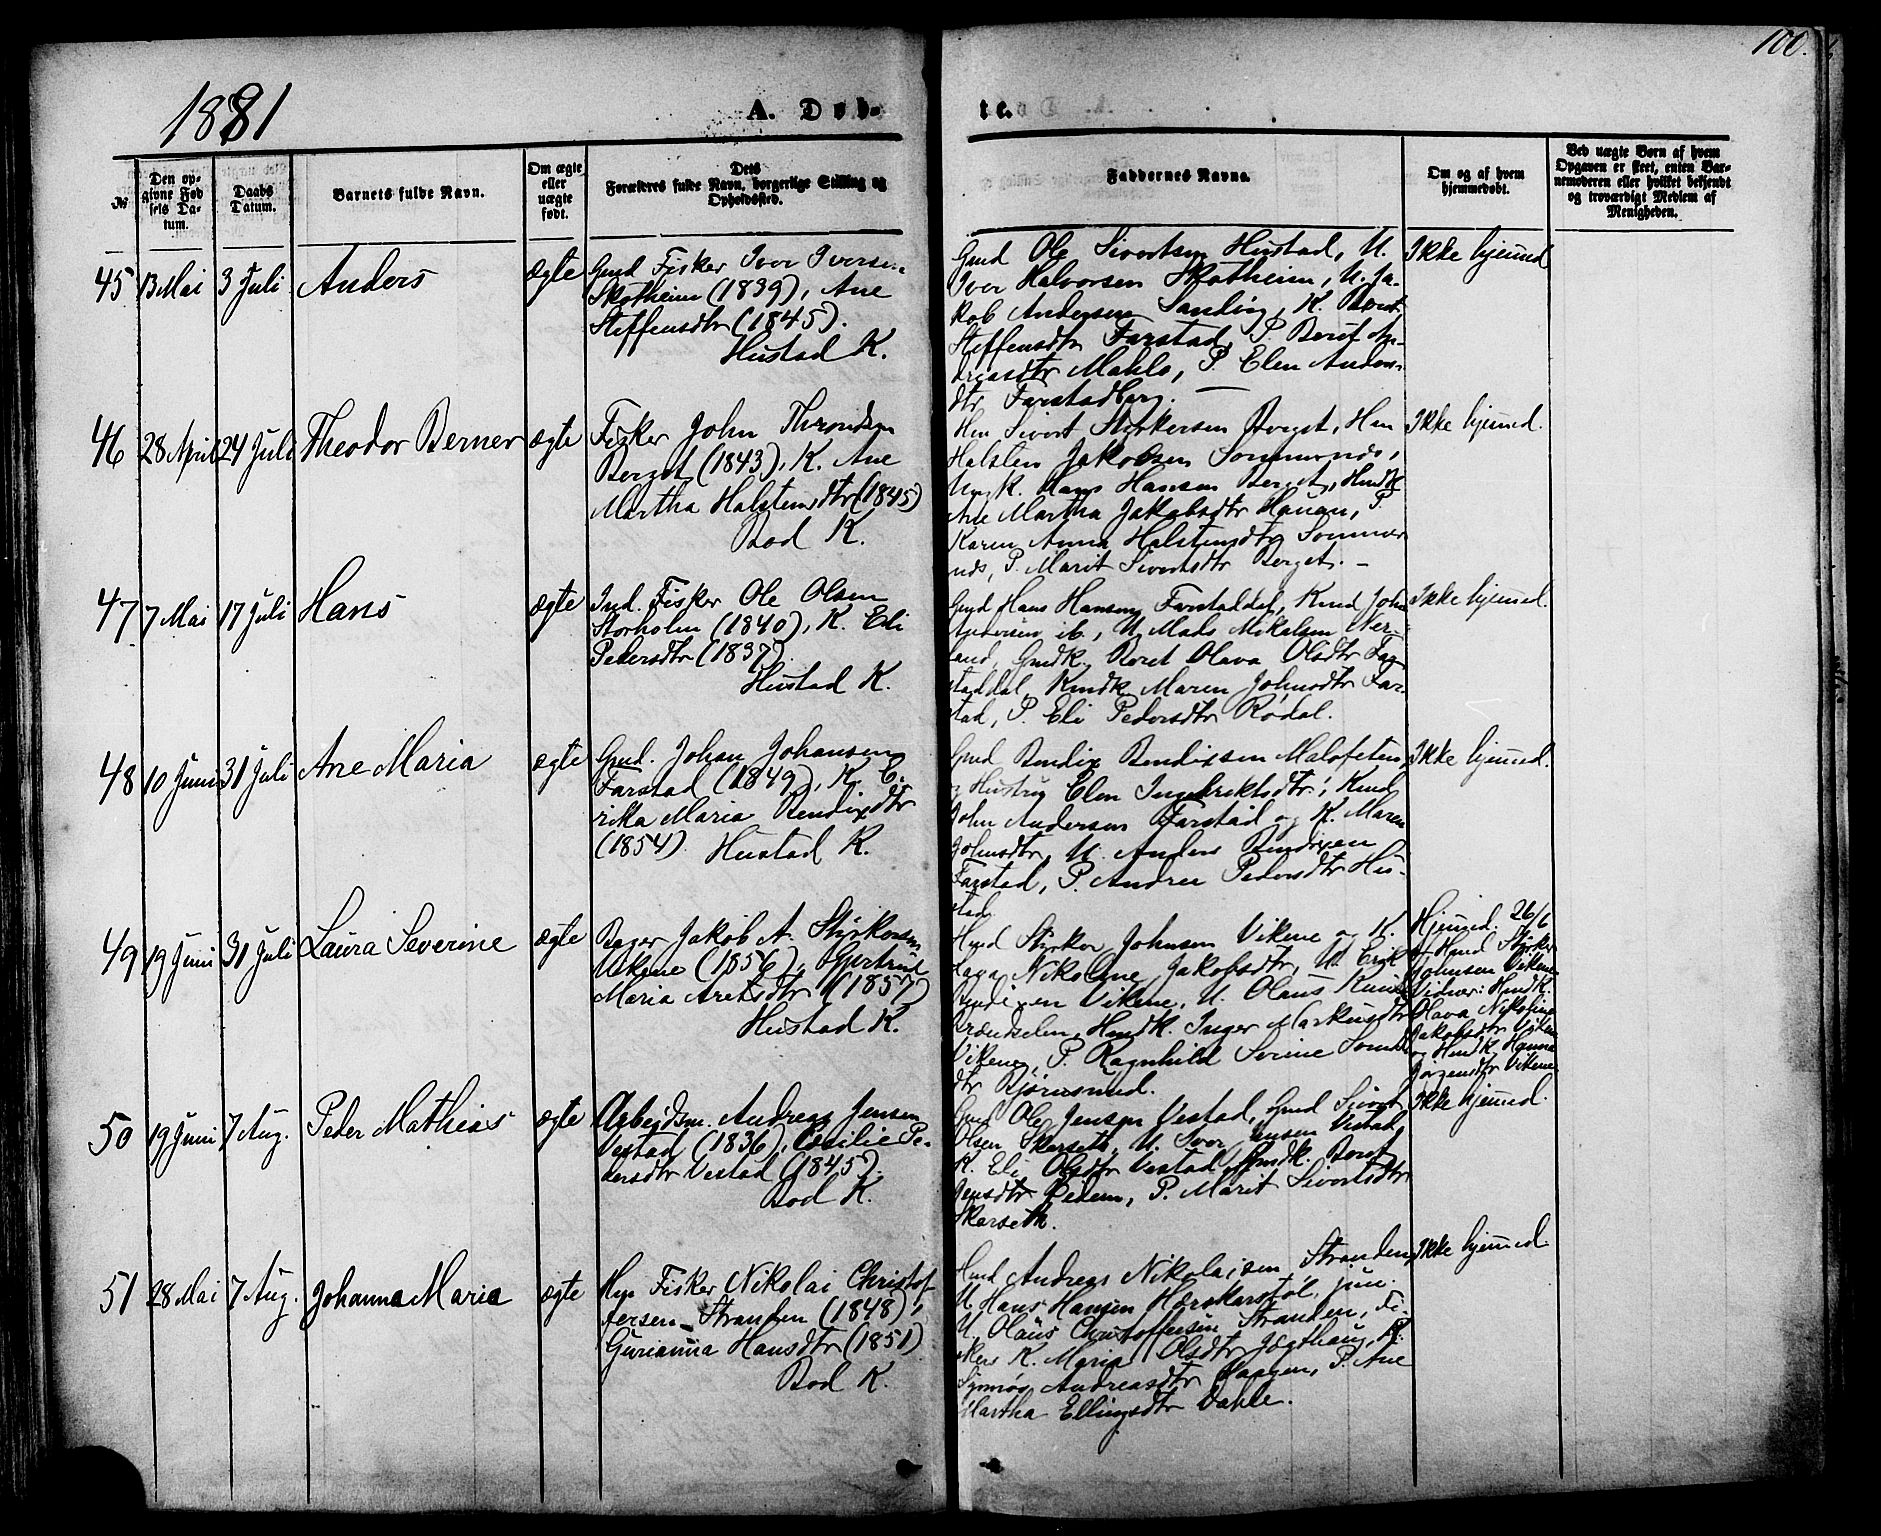 100.
1881
A. Døb-
te.
№
Den op-
givne Fød
sels Da-
tum.
Daabs
Datum.
Barnets fulde Navn.
Om ægte
eller
uægte
født.
Dets
Forældres fulde Navn, borgerlige Stilling og
Opholdssted.
Faddernes Navne.
Om og af hvem
hjemmedøbt.
Ved uægte Børn af hvem
Opgaven er skeet, enten Bar-
nemoderen eller hvilket bekjendt
og troværdigt Medlem af
Menigheden.
45 13 Mai 3 Juli Anders ægte
Gmd Fisker Iver Iversen
Skotheim (1839), Ane
Steffensdtr (1845).
Hustad K.
Gmd Ole Sivertsen Hustad, U.
Iver Halvorsen Skotheim, U. Ja-
kob Andersen Sandvig, K. Beret
Steffensdtr Farstad, P. Beret An-
dreasdtr Mahlo, P. Elen Anders-
dtr Farstadberg. —
Ikke hjemmd
46 28 April 24 Juli Theodor Berner ægte
Fisker John Throndsen
Berget (1843), K. Ane
Martha Halstensdtr (1845)
Bod K.
Hm Sivert Styrkersen Berget, Hm
Halsten Jakobsen Sommernds,
Ungk. Hans Hansen Berget, Hmdk
Ane Martha Jakobsdtr Hauan, P.
Karen Anna Halstensdtr Sommer
nds, P. Marit Sivertsdtr Berget. —
Ikke hjemmd.
47 7 Mai 17 Juli Hans ægte
Ind. Fisker Ole Olsen
Storholm (1840), K. Eli
Pedersdtr (1837)
Hustad K.
Gmd Hans Hansen Farstaddal, Kmd John
Andersen ib., U. Mads Mikalsen Ner-
land, Gmdk. Beret Olava Olsdtr Far
staddal, Kmdk Maren Johnsdtr Far-
stad, P. Eli Pedersdtr Rødal.
Ikke hjemmd.
48 10 Juni 31 Juli Ane Maria ægte
Gmd. Johan Johansen
Farstad (1849), K. E-
rika Maria Bendixdtr
(1854) Hustad K.
Gmd Bendix Bendixsen Malefeten,
og Hustru Elen Ingebriktsdtr; Kmd
John Andersen Farstad og K. Maren
Johnsdtr, U. Anders Bendixen
Farstad, P. Andrea Pedersdtr Hu-
stad.
Ikke hjemmd.
49 19 Juni 31 Juli Laura Severine ægte
Bager Jakob A. Styrkersen
Vikene (1856), Gjertrud
Maria Aretsdtr (1857)
Hustad K.
Hmd Styrker Johnsen Vikene og K.
Olava Nikoline Jakobsdtr, U. Erik
Bendixen Vikene, U. Olaus Knuds
Brændselen, Hmdk. Inger Markusdtr
Vikene, P. Ragnhild Serine
dtr Bjørnsund.
Hjemmd. 26/6
af Hmd Styrker
Johnsen Vikene
Vidner: Hmdk
Olava Nikoline
Jakobsdtr Viken
og Hmdk Hanna
Jørgensdtr Vikene
50 19 Juni 7 Aug. Peder Mathias ægte
Arbejdsm. Andreas Jensen
Vestad (1836), Cesilie Pe-
dersdtr Vestad (1845).
Bod K.
Gmd Ole Jensen Vestad, Gmd Sivert
Olsen Skarseth, U. Iver Jensen Vestad,
K. Eli Olsdtr Vestad, Gmdk. Beret
Jensdtr, P. Marit Sivertsdtr
Skarseth.
Ikke hjemmd.
51 28 Mai 7 Aug. Johanna Maria ægte
Hm Fisker Nikolai Christof
fersen Stranden (1848),
Gurianna Hansdtr (1851)
Bod K.
Hmd Andreas Nikolaisen Stranden,
U. Hans Hansen Harskarstøl, jun.
U. Olaus Christoffersen Stranden, Fi-
skers K. Maria Olsdtr Jegthaug, K.
Synnøv Andreasdtr Haagen, P. Ane
Martha Ellingsdtr Vahle.
Ikke hjemmd.